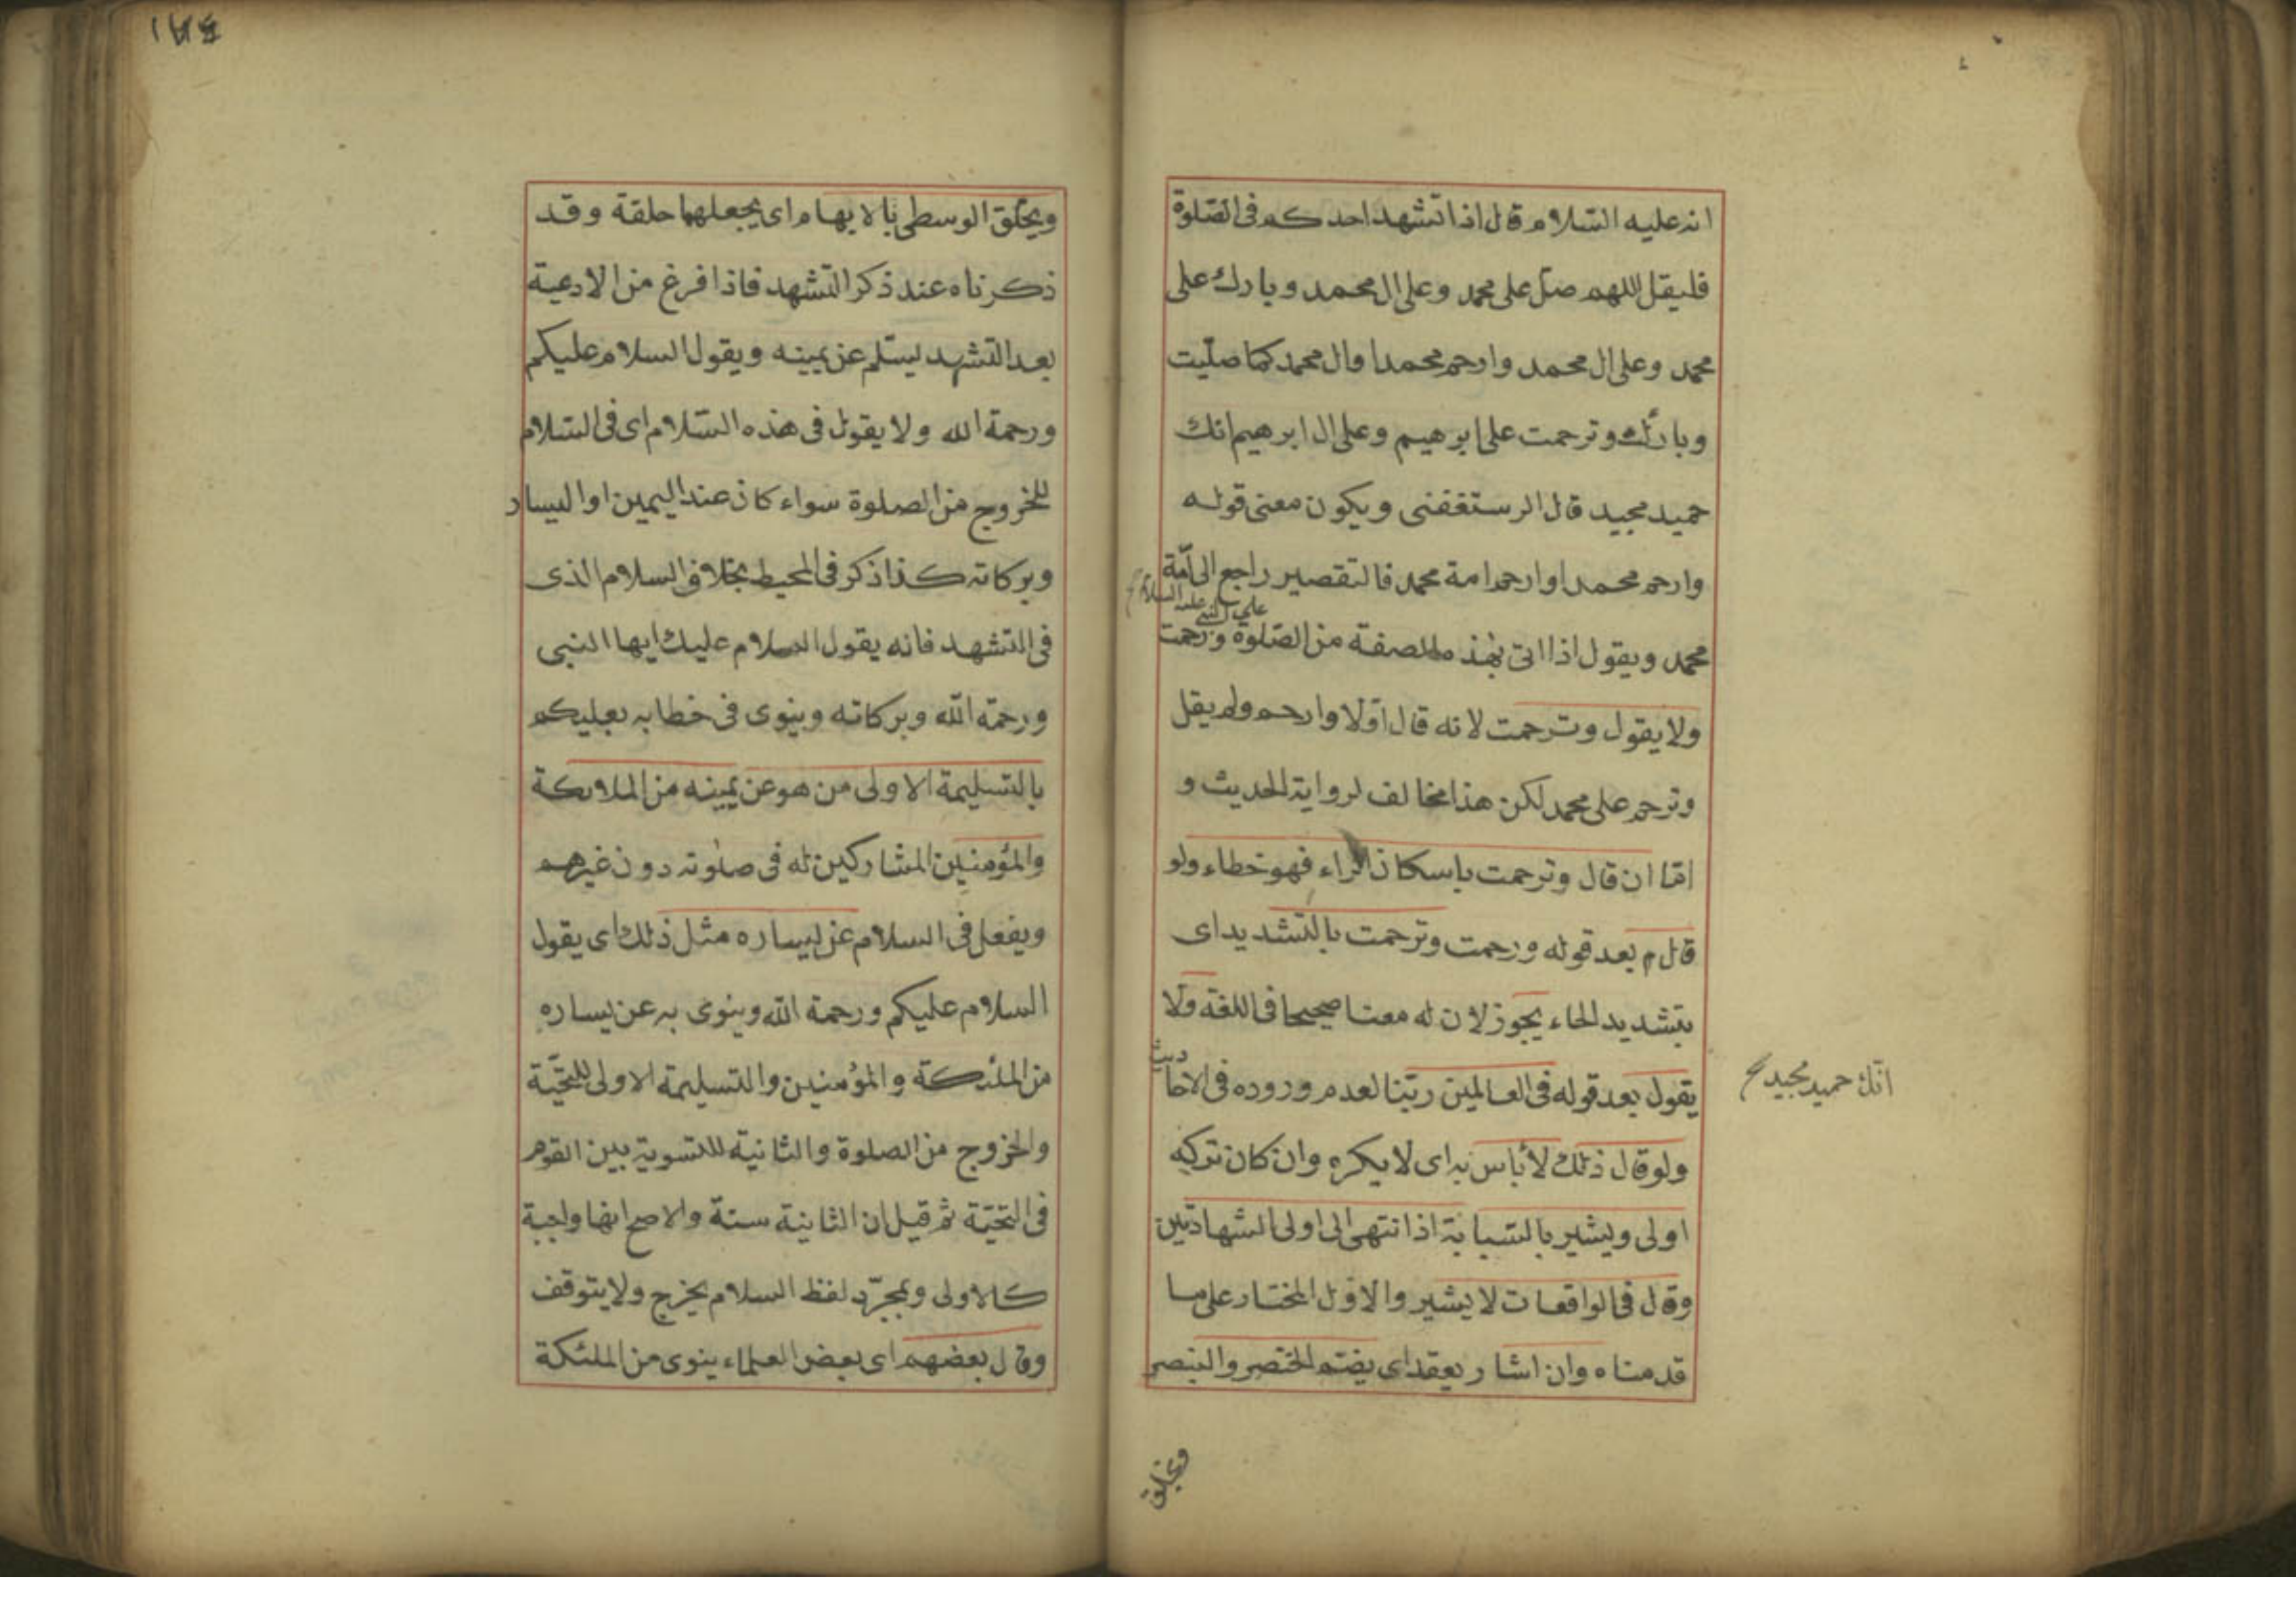 انه عليه السّلام قال اذا تشهد احدكم فى الصّلوة
فليقل اللهم صلّ على محمد وعلى ال محمد وبارك على
محمد وعلى ال محمد وارحم محمدا وال محمد كما صلّيت
وباركت وترحمت على ابرهيم وعلى ال ابرهيم انك
حميد مجيد قال الرستغفنى ويكون معنى قوله
وارحم محمدا وارحم امة محمد فالتقصير راجع الى امّة
على النبى عليه السلام
محمد ويقول اذا اتى بهذه الصفة من الصّلوة ورحمت
ولا يقول وترحمت لانه قال اوّلا وارحم ولم يقل
وترحم على محمد لكن هذا مخالف لرواية الحديث و
امّا ان قال وترحمت باسكان الراء فهو خطاء ولو
قال م بعد قوله ورحمت وترحمت بالتشديد اى
بتشديد الحاء يجوز لان له معنا صحيحا فى اللغة ولا
يقول بعد قوله فى العالمين ربّنا لعدم وروده فى الاحاديث
انّك حميد مجيد
ولو قال ذلك لا بأس به اى لا يكره وان كان تركه
اولى ويشير بالسّبابة اذا انتهى الى اولى الشهادتين
وقال فى الواقعات لا يشير والاوّل المختار على ما
قدمناه وان اشار يعقد اى يضم الخنصر والبنصر
ويحلق
ويحلّق الوسطى بالابهام اى يجعلهما حلقة وقد
ذكرناه عند ذكر التّشهد فاذا فرغ من الادعية
بعد التّشهد يسلّم عن يمينه ويقول السلام عليكم
ورحمة الله ولا يقول فى هذه السّلام اى فى السّلام
للخروج من الصلوة سواء كان عند اليمين او اليسار
وبركاته كذا ذكر فى المحيط بخلاف السلام الذى
فى التشهد فانه يقول السلام عليك ايها النبى
ورحمة الله وبركاته وينوى فى خطابه بعليكم
بالتسليمة الاولى من هو عن يمينه من الملائكة
والمؤمنين المشاركين له فى صلوته دون غيرهم
ويفعل فى السلام عن يساره مثل ذلك اى يقول
السلام عليكم ورحمة الله وينوى به عن يساره
من الملئيكة والمؤمنين والتسليمة الاولى للتحيّة
والخروج من الصلوة والثانية للتسوية بين القوم
فى التحيّة ثم قيل ان الثانية سنة والاصح انها واجبة
كالاولى وبمجرّد لفظ السلام يخرج ولا يتوقف
وقال بعضهم اى بعض العلماء ينوى من الملئكة